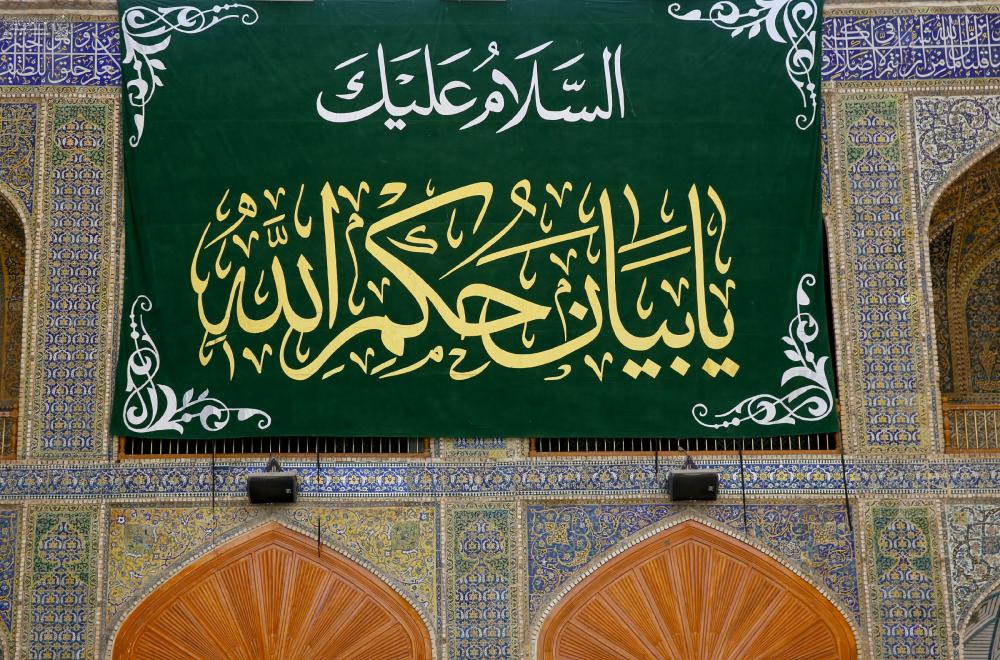 السَّلَامُ عَلَيْكَ
يَا بَيَانَ حُكْمِ اللَّهِ